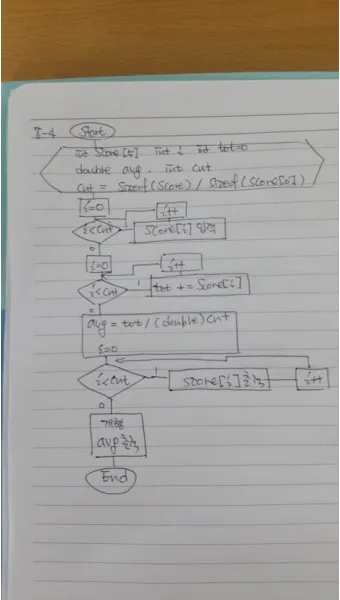 8-4 Start
int Score[5] int i int tot=0
double avg. int cnt
cnt = Sizeof(Score) / Sizeof(Score[0])
i=0
i++
i<cnt 1 Score[i] 입력
0
i=0
i++
i<cnt 1 tot += Score[i]
0
avg = tot / (double)cnt
i=0
i<cnt 1 Score[i] 출력 i++
0
개행
avg 출력
End